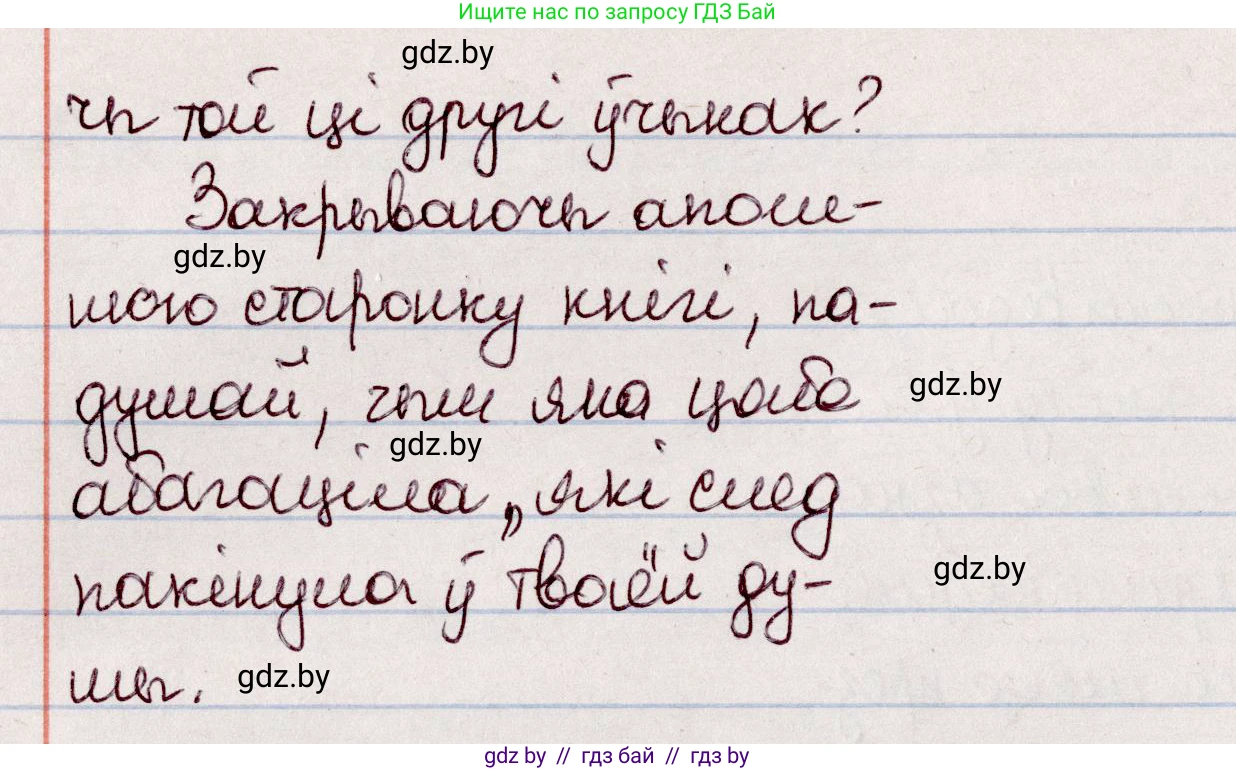 Ищите нас по запросу ГДЗ Бай
gdz.by
чы той ці другі ўчынак?
Закрываючы апош-
gdz.by
нюю старонку кнігі, па-
думай, чым яна цябе
gdz.by
gdz.by
абагаціла, які след
пакінула ў тваёй ду-
gdz.by
шы.
gdz.by
gdz by // гдз бай // гдз by